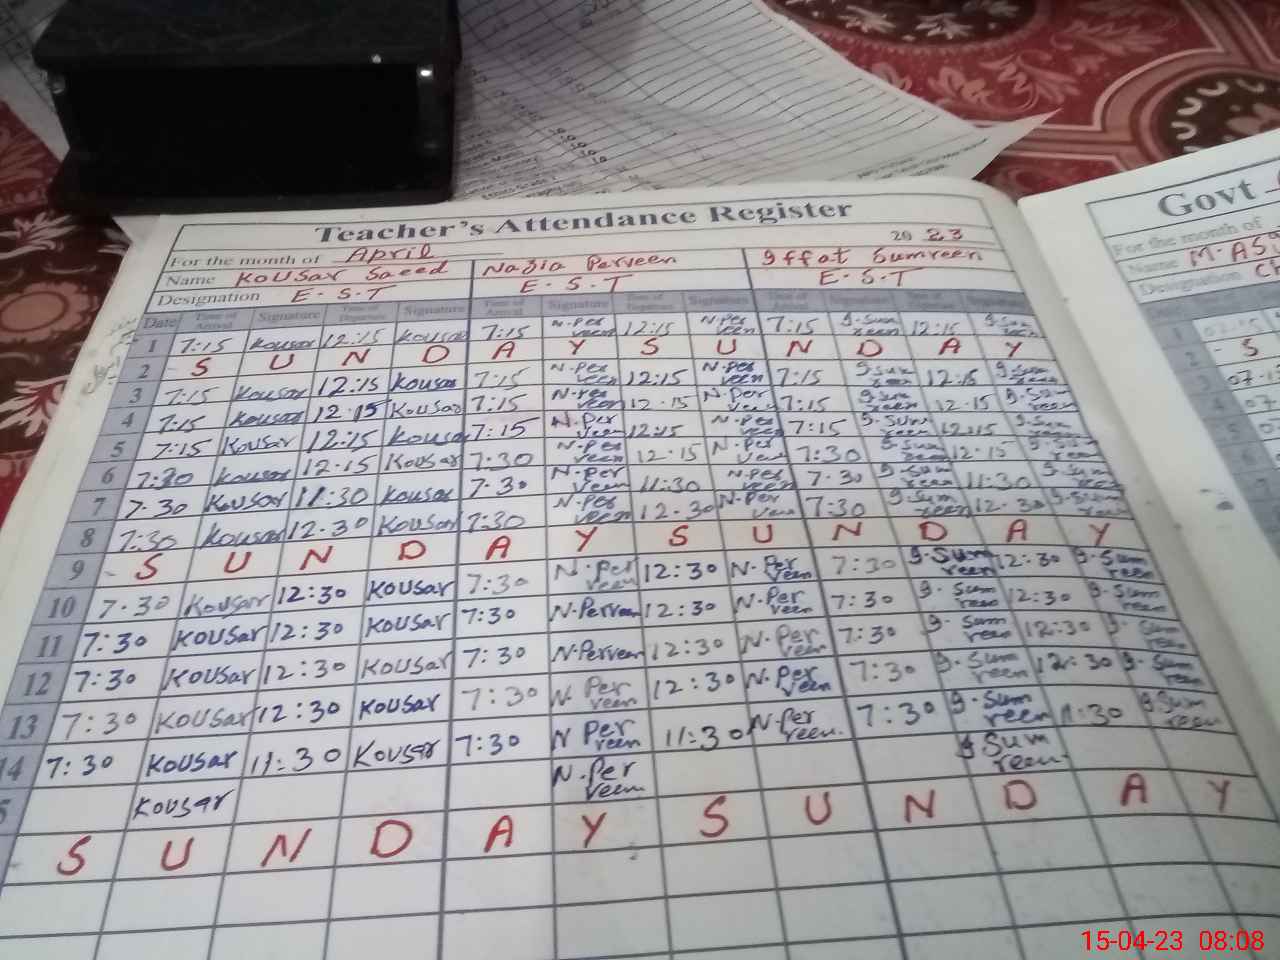 Teacher's Attendance Register
For the month of April 2023
Name Kousar Saeed Nazia Perveen Iffat Sumreen
Designation E.S.T E.S.T E.S.T
Date Time of Arrival Signature Time of Departure Signature Time of Arrival Signature Time of Departure Signature Time of Arrival Signature
1 7:15 Kousar 12:15 Kousar 7:15 N.Perveen 12:15 N.Perveen 7:15 I.Sumreen 12:15 I.Sumreen
2 S U N D A Y S U N D A Y
3 7:15 Kousar 12:15 Kousar 7:15 N.Perveen 12:15 N.Perveen 7:15 I.Sumreen 12:15 I.Sumreen
4 7:15 Kousar 12:15 Kousar 7:15 N.Perveen 12:15 N.Perveen 7:15 I.Sumreen 12:15 I.Sumreen
5 7:15 Kousar 12:15 Kousar 7:15 N.Perveen 12:15 N.Perveen 7:15 I.Sumreen 12:15 I.Sumreen
6 7:30 Kousar 12:15 Kousar 7:30 N.Perveen 12:15 N.Perveen 7:30 I.Sumreen 12:15 I.Sumreen
7 7:30 Kousar 11:30 Kousar 7:30 N.Perveen 11:30 N.Perveen 7:30 I.Sumreen 11:30 I.Sumreen
8 7:30 Kousar 12:30 Kousar 7:30 N.Perveen 12:30 N.Perveen 7:30 I.Sumreen 12:30 I.Sumreen
9 S U N D A Y S U N D A Y
10 7:30 Kousar 12:30 Kousar 7:30 N.Perveen 12:30 N.Perveen 7:30 I.Sumreen 12:30 I.Sumreen
11 7:30 Kousar 12:30 Kousar 7:30 N.Perveen 12:30 N.Perveen 7:30 I.Sumreen 12:30 I.Sumreen
12 7:30 Kousar 12:30 Kousar 7:30 N.Perveen 12:30 N.Perveen 7:30 I.Sumreen 12:30 I.Sumreen
13 7:30 Kousar 12:30 Kousar 7:30 N.Perveen 12:30 N.Perveen 7:30 I.Sumreen 12:30 I.Sumreen
14 7:30 Kousar 11:30 Kousar 7:30 N Perveen 11:30 N.Perveen. 7:30 I.Sumreen 11:30 I.Sumreen
5 Kousar N.Perveen I Sumreen
S U N D A Y S U N D A Y
Govt
For the month of
Name M.As
Designation
1
2 S
3 07
4 07
5 07
6
15-04-23 08:08